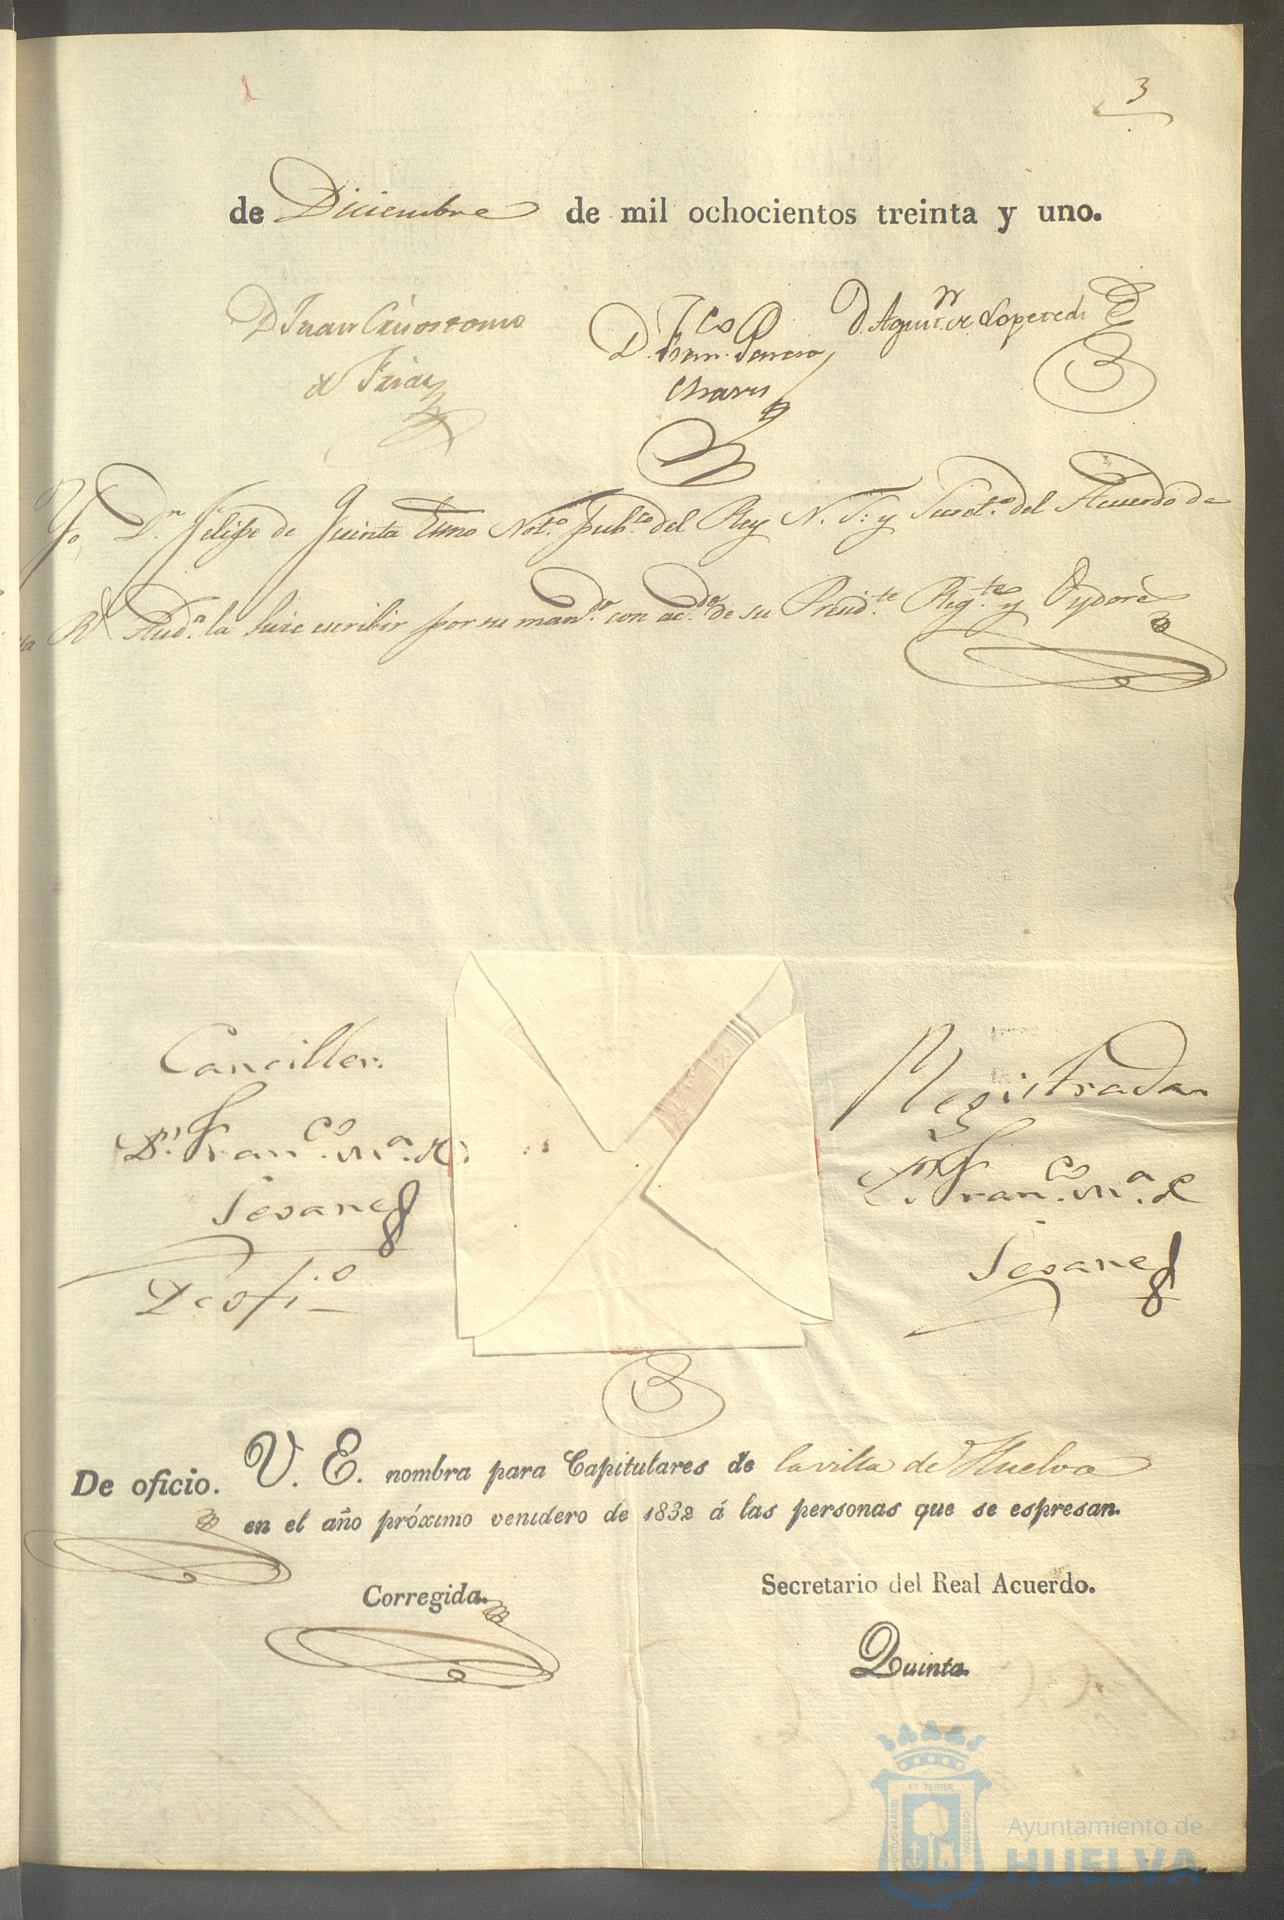 3
de Diciembre de mil ochocientos treinta y uno.
D Juan Crisostomo
de Frias
D. Fran.co Pereira
Chaves
D. Agustin de Loperedi
Yo, D.n Felipe de Quinta Essno Not.o pub.co del Rey N. S: y Secret.o del Acuerdo de
ta R.l Aud.a la hice escribir por su man.do con ac.do de su Presid.te Reg.te y Oydores
Canciller.
D.n Fran.co M.a de
Seoane
De ofi.o
Registrada
D.n Fran.co M.a de
Seoane
De oficio.
V. E. nombra para Capitulares de la villa de Huelva
en el año próximo venidero de 1832 á las personas que se espresan.
Corregida.
Secretario del Real Acuerdo.
Quinta.
ET TERRÆ
PORTUS MARIS
CUSTODIA
Ayuntamiento de
HUELVA